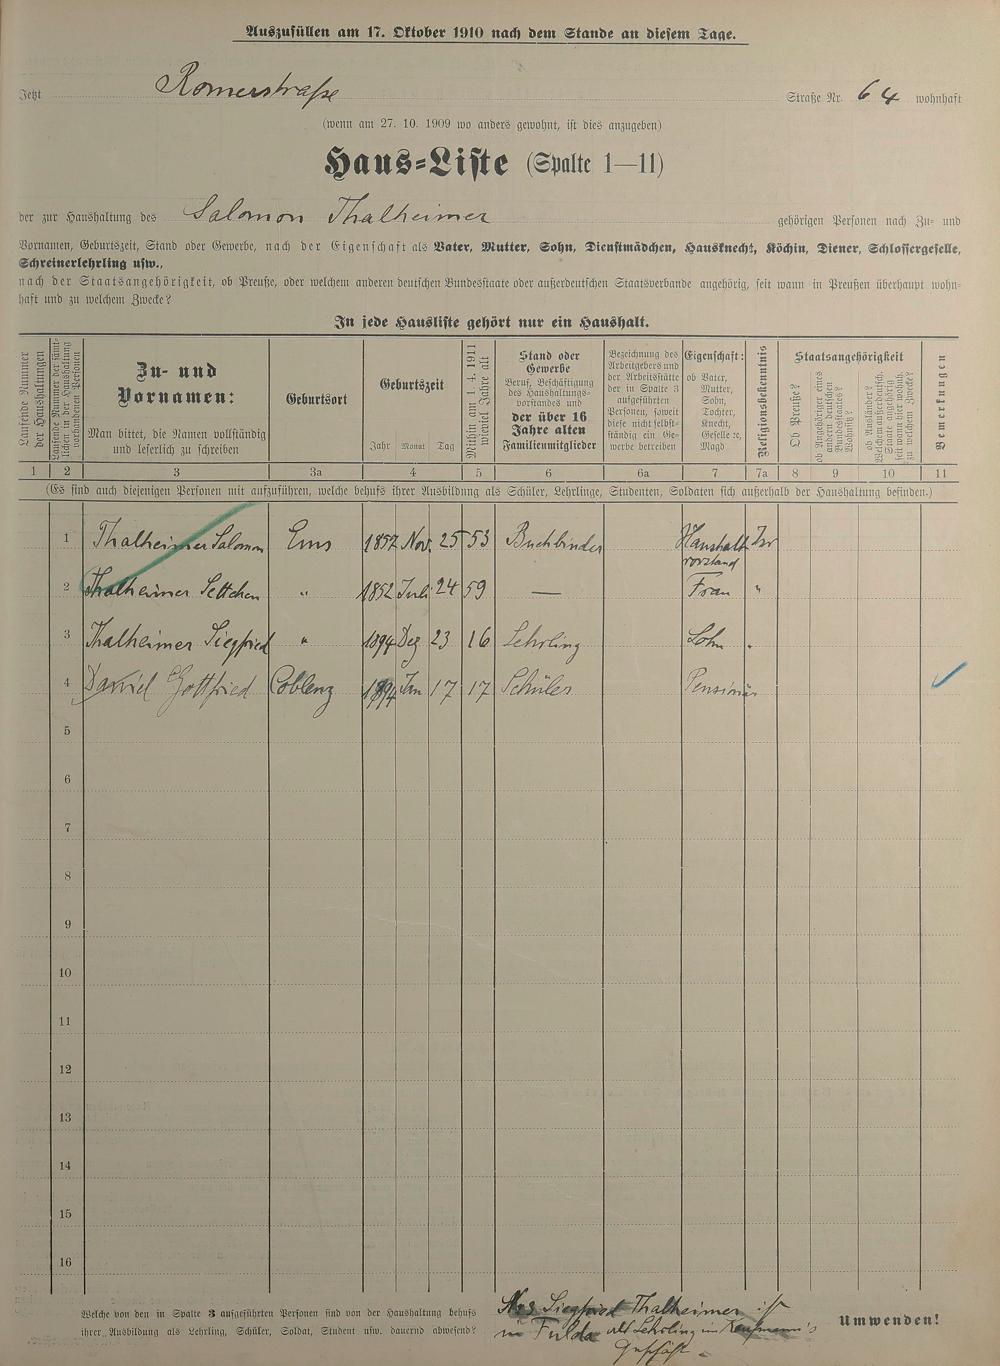 Auszufüllen am 17. Oktober 1910 nach dem Stande an diesem Tage.
Jetzt Römerstraße Straße Nr. 64 wohnhaft
(wenn am 27. 10. 1909 wo anders gewohnt, ist dies anzugeben)
Haus-Liste (Spalte 1—11)
der zur Haushaltung des Salomon Thalheimer gehörigen Personen nach Zu- und
Vornamen, Geburtszeit, Stand oder Gewerbe, nach der Eigenschaft als Vater, Mutter, Sohn, Dienstmädchen, Hausknecht, Köchin, Diener, Schlossergeselle,
Schreinerlehrling usw.,
nach der Staatsangehörigkeit, ob Preuße, oder welchem anderen deutschen Bundesstaate oder außerdeutschen Staatsverbande angehörig, seit wann in Preußen überhaupt wohn-
haft und zu welchem Zwecke?
In jede Hausliste gehört nur ein Haushalt.
Laufende Nummer der Haushaltungen
Laufende Nummer der sämt-
lichen in der Haushaltung
vorhandenen Personen
Zu- und
Vornamen:
Man bittet, die Namen vollständig
und leserlich zu schreiben
Geburtsort
Geburtszeit
Jahr Monat Tag
Mithin am 1. 4. 1911
wieviel Jahre alt
Stand oder
Gewerbe
Beruf, Beschäftigung
des Haushaltungs-
vorstandes und
der über 16
Jahre alten
Familienmitglieder
Bezeichnung des
Arbeitgebers und
der Arbeitsstätte
der in Spalte 3
aufgeführten
Personen, soweit
diese nicht selbst-
ständig ein Ge-
werbe betreiben
Eigenschaft:
ob Vater,
Mutter,
Sohn,
Tochter,
Knecht,
Geselle ꝛc,
Magd
Religionsbekenntnis
Staatsangehörigkeit
Ob Preuße?
ob Angehöriger eines
andern deutschen
Bundesstaates?
Wohnsitz?
ob Ausländer?
Welchem außerdeutsch.
Staate angehörig
seit wann hier wohnh.
zu welchem Zwecke?
Bemerkungen
1 2 3 3a 4 5 6 6a 7 7a 8 9 10 11
(Es sind auch diejenigen Personen mit aufzuführen, welche behufs ihrer Ausbildung als Schüler, Lehrlinge, Studenten, Soldaten sich außerhalb der Haushaltung befinden.)
1 Thalheimer Salomon Ems 1857 Nov. 25 53 Buchbinder Haushalt Isr
vorstand
2 Thalheimer Settchen " 1852 Juli 24 59 — Frau "
3 Thalheimer Siegfried " 1894 Dez 23 16 Lehrling Sohn "
4 Daniel Gottfried Coblenz 1894 Jan 17 17 Schüler Pensionär
5
6
7
8
9
10
11
12
13
14
15
16
Welche von den in Spalte 3 aufgeführten Personen sind von der Haushaltung behufs
ihrer Ausbildung als Lehrling, Schüler, Soldat, Student usw. dauernd abwesend?
No 3 Siegfried Thalheimer ist
in Fulda als Lehrling im Kaufmann's
Geschäft.
Umwenden!